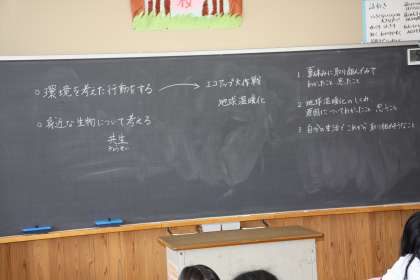 ○環境を考えた行動をする → エコアップ大作戦
地球温暖化
○身近な生物について考える
共生
きょうせい
1 夏休みに取り組んでみて
わかったこと 思ったこと
2 地球温暖化のしくみ
原因についてわかったこと 思うこと
3 自分の生活でこれから取り組めそうなこと